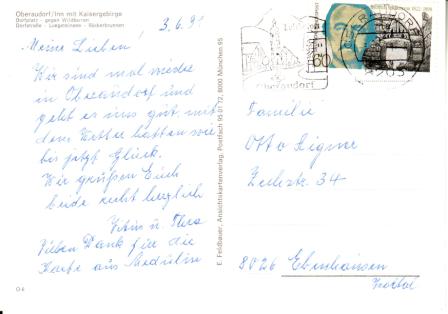 Oberaudorf/Inn mit Kaisergebirge
Dorfplatz - gegen Wildbarren
Dorfstraße - Luegsteinsee -
3.6.91
Meine Lieben!
Wir sind mal wieder
in Oberaudorf und
geht es uns gut, mit
dem Wetter hatten wir
bis jetzt Glück.
Wir grüßen Euch
beide recht herzlich
u.
Vielen Dank für die
Karte aus
E. Feldbauer, Ansichtskartenverlag, Postfach 95 01 72, 8000 München 95
60
Oberaudorf
8203
Familie
Otto
34
8026 Ebenhausen
Isartal